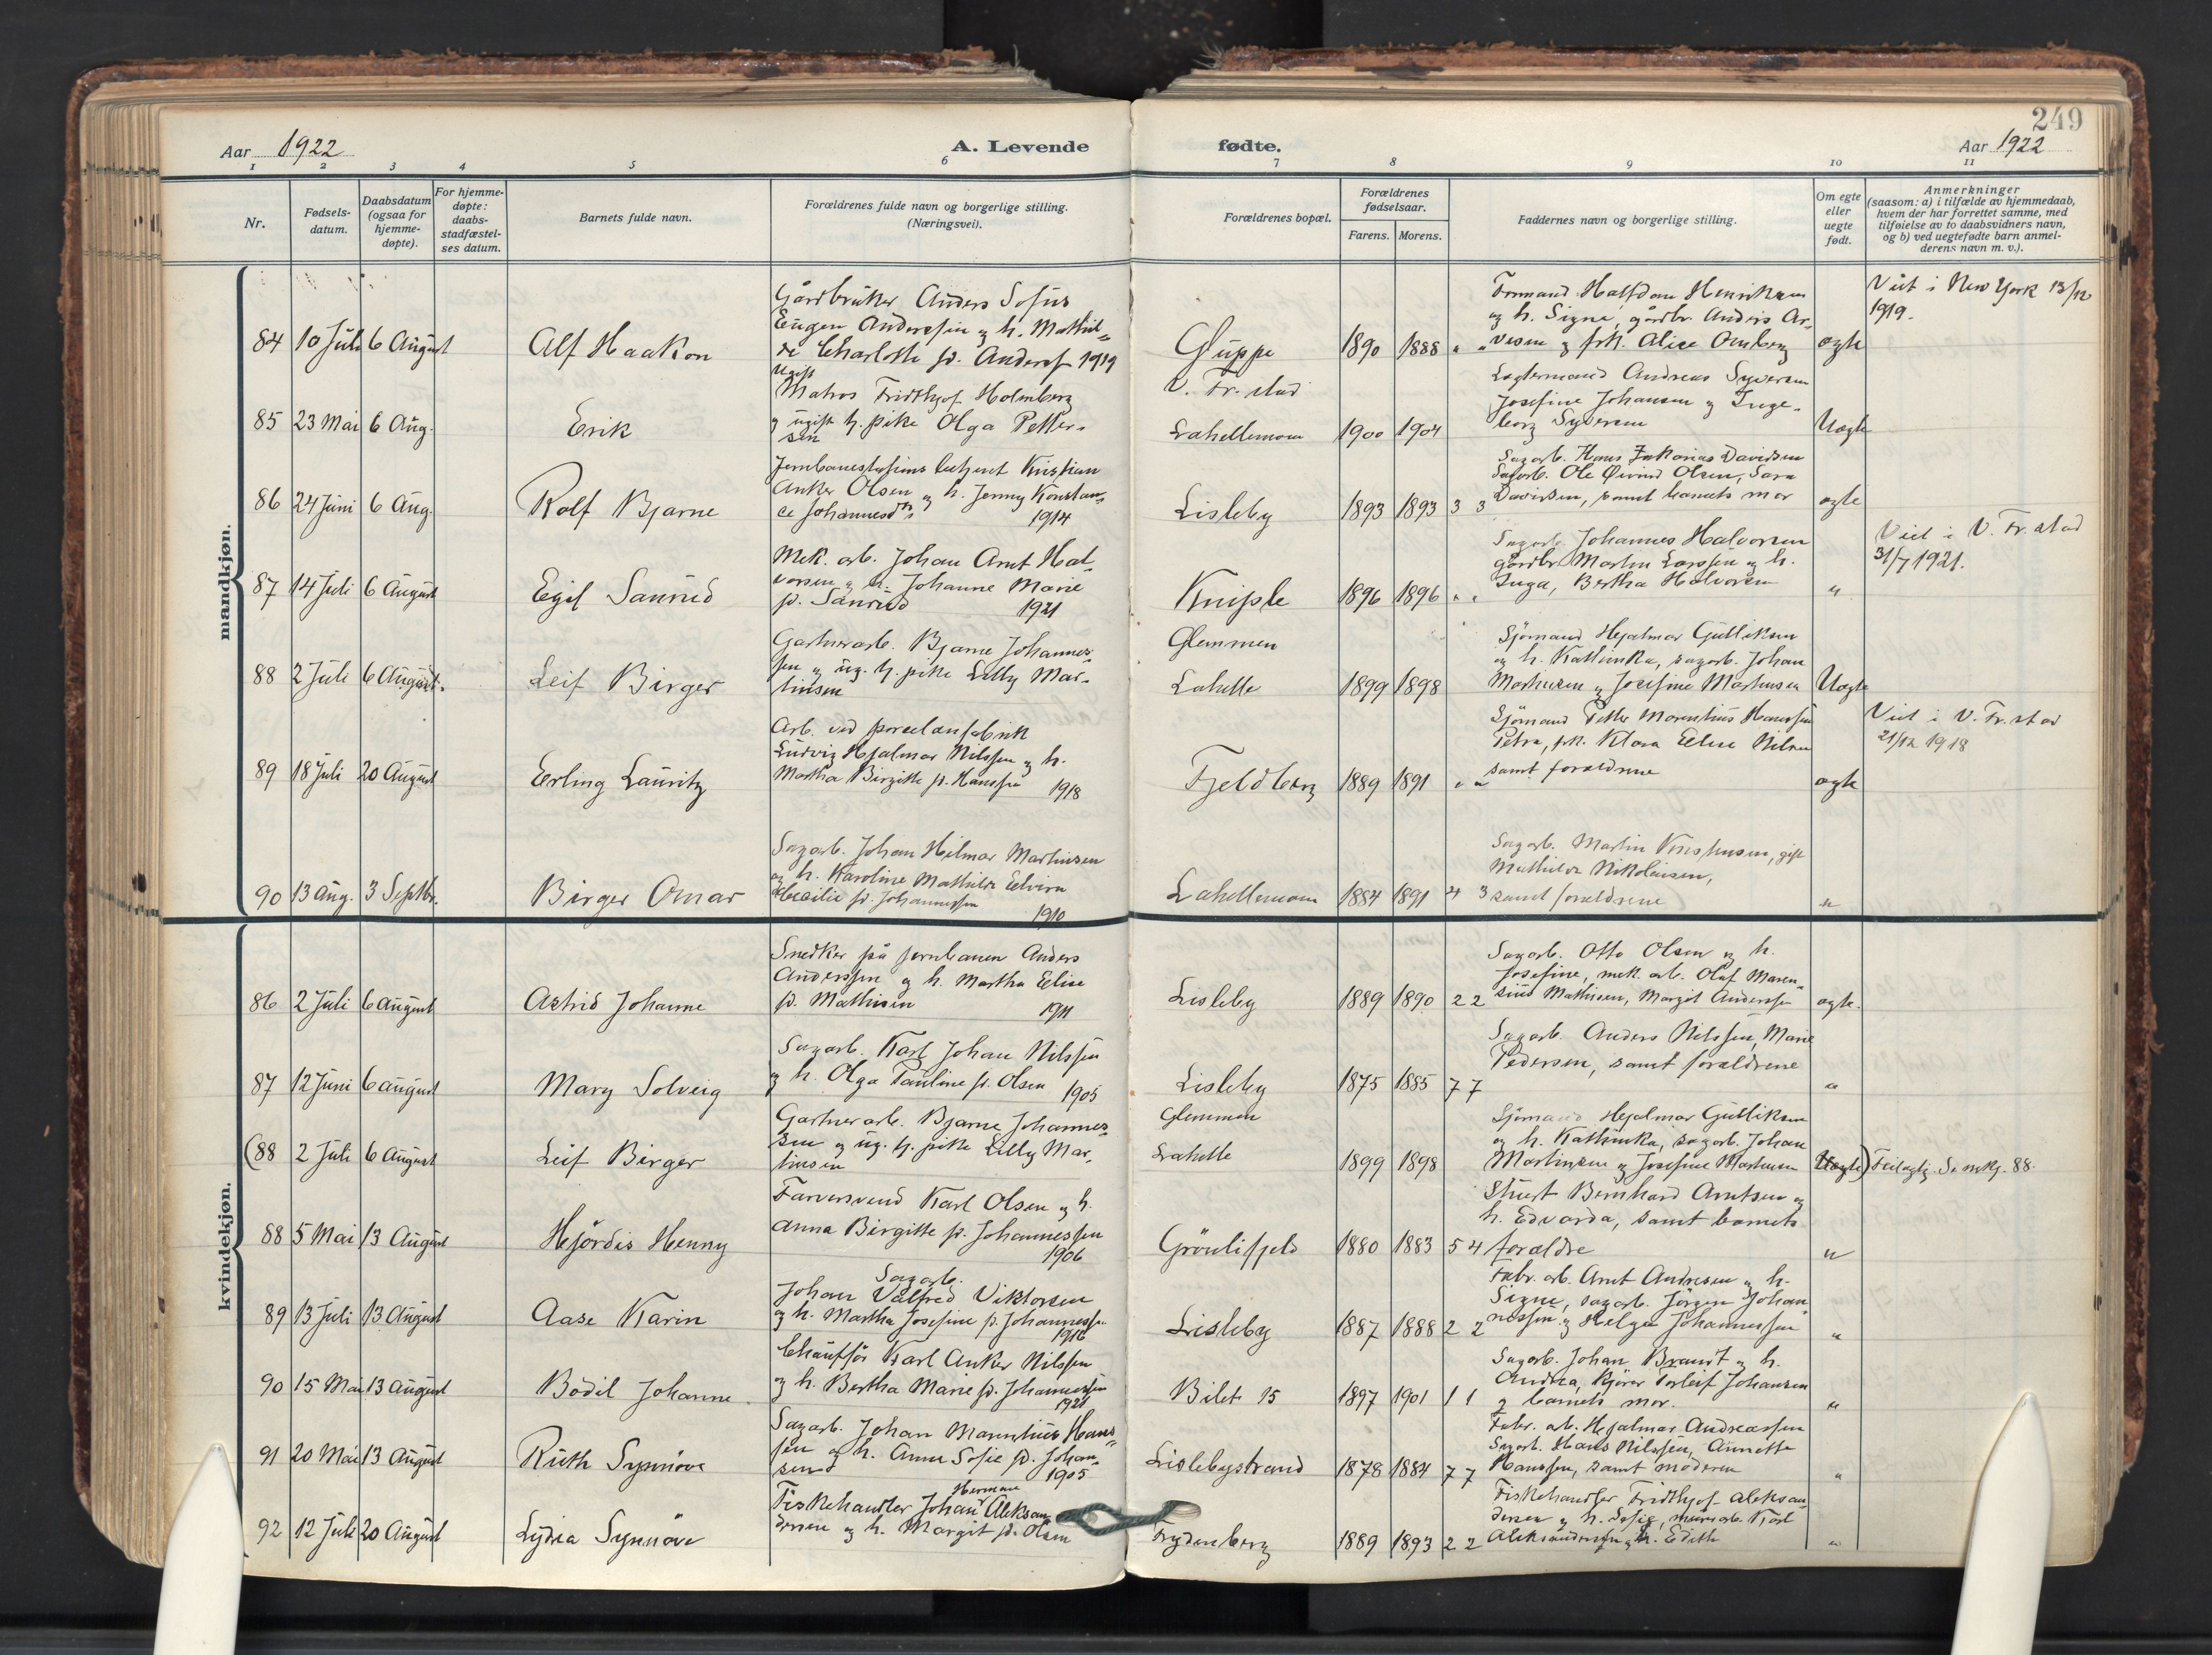 249
Aar 1922
A. Levende
fødte.
Aar 1922
1 2 3 4 5 6 7 8 9 10 11
Nr.
Fødsels-
datum.
Daabsdatum
(ogsaa for
hjemme-
døpte).
For hjemme-
døpte:
daabs-
stadfæstel-
ses datum.
Barnets fulde navn.
Forældrenes fulde navn og borgerlige stilling.
(Næringsvei).
Forældrenes bopæl.
Forældrenes
fødselsaar.
Farens. Morens.
Faddernes navn og borgerlige stilling.
Om egte
eller
uegte
født.
Anmerkninger
(saasom: a) i tilfælde av hjemmedaab,
hvem der har forrettet samme, med
tilføielse av to daabsvidners navn,
og b) ved uegtefødte barn anmel-
derens navn m. v.).
mandkjøn.
84 10 Juli 6 August Alf Haakon
Gårdbruker Anders Sofus
Eugen Anderssen og h. Mathil-
de Charlotte f. Anderss 1919
Gluppe 1890 1888 " "
Formand Halfdan Henriksen
og h. Signe, gårdbr. Anders Ar-
vesen og frk. Alice Omberg
egte
Viet i New York 13/12
1919.
85 23 Mai 6 Aug. Erik
Ugift
Matros Fridthjof Holmberg
og ugift tj. pike Olga Petter-
sen
V. Fr. stad
Lahellemoen 1900 1904
Lagtermand Andreas Syversen
Josefine Johansen og Inge-
borg Syversen
Uegte
86 24 Juni 6 Aug. Rolf Bjarne
Jernbanestasjons betjent Kristian
Anker Olsen og h. Jenny Konstan-
ce Johannesdtr 1914
Lisleby 1893 1893 3 3
Sagarb. Hans Zakarias Davidsen
Sagarb. Ole Øivind Olsen, Sara
Davidsen, samt barnets mor
egte
87 14 Juli 6 August Egil Sanrud
Mek. arb. Johan Arnt Hal-
vorsen og h. Johanne Marie
f. Sanrud 1921
Kniple 1896 1896 " "
Sagarb. Johannes Halvorsen
gårdbr. Martin Larssen og h.
Inga, Bertha Halvorsen
"
Viet i V. Fr. stad
31/7 1921.
88 2 Juli 6 August. Leif Birger
Gartnerarb. Bjarne Johannes-
sen og ug. tj. pike Lilly Mar-
tinsen
Glemmen
Lahelle 1899 1898
Sjömand Hjalmar Gulliksen
og h. Kathinka, sagarb. Johan
Martinsen og Josefine Martinsen
Uegte
89 18 Juli 20 August Erling Lauritz
Arb. ved porcelænsfabrik
Ludvig Hjalmar Nilssen og h.
Martha Birgitte f. Hanssen 1918
Fjeldberg 1889 1891 " "
Sjömand Petter Marentius Hanssen
Petra, frk. Klara Elise Nilsen
samt forældrene
egte
Viet i V. Fr. stad
21/12 1918
90 13 Aug. 3 Septbr. Birger Omar
Sagarb. Johan Hilmar Martinsen
og h. Karoline Mathilde Elvira
Cecilie f. Johannessen 1910
Lahellemoen 1884 1891 4 3
Sagarb. Martin Kristensen, gift
Mathilde Nikolaisen,
samt forældrene
"
kvindekjøn.
86 2 Juli 6 August Astrid Johanne
Snedker på jernbanen Anders
Anderssen og h. Martha Elise
f. Mathisen 1911
Lisleby 1889 1890 2 2
Sagarb. Otto Olsen og h.
Josefine, mek. arb. Olaf Maren-
sius Mathisen, Margit Anderssen
egte.
87 12 Juni 6 august Mary Solveig
Sagarb. Karl Johan Nilssen
og h. Olga Pauline f. Olsen 1905
Lisleby 1875 1885 7 7
Sagarb. Anders Nilssen, Marie
Pedersen, samt forældrene
"
(88 2 Juli 6 August Leif Birger
Gartnerarb. Bjarne Johannes-
sen og ug. tj. pike Lilly Mar-
tinsen
Glemmen
Lahelle 1899 1898
Sjömand Hjalmar Gulliksen
og h. Kathinka, sagarb. Johan
Martinsen og Josefine Martinsen
Uegte) Feilagtig. Se mkj. 88.
88 5 Mai 13 August Hjördis Henny
Farversvend Karl Olsen og h.
Anna Birgitte f. Johannessen
1906
Grönlifjeld 1880 1883 5 4
Stuert Bernhard Arntsen og
h. Edvarda, samt barnets
forældre
"
89 13 Juli 13 August Aase Karin
Sagarb.
Johan Valfred Viktorsen
og h. Martha Josefine f. Johannessen
1910
Lisleby 1887 1888 2 2
Fabr. arb. Arnt Andresen og h.
Signe, sagarb. Jörgen Johan-
nessen og Helga Johannessen
"
90 15 Mai 13 August Bodil Johanne
Chauffør Karl Anker Nilssen
og h. Bertha Marie f. Johannessen
1921
Bilet 15 1897 1901 1 1
Sagarb. Johan Brandt og h.
Andrea, kjører Torleif Johansen
og barnets mor.
"
91 20 Mai 13 August Ruth Synnöve
Sagarb. Johan Marentius Hans-
sen og h. Anna Sofie f. Johan-
sen 1905
Lislebystrand 1878 1884 7 7
Fabr. arb. Hjalmar Andreassen
Sagarb. Hans Nilssen, Annette
Hanssen, samt moderen
"
92 12 Juli 20 August Lydia Synnöve
Herman
Fiskehandler Johan Aleksan-
dersen og h. Margit f. Olsen
Frydenberg 1889 1893 2 2
Fiskehandler Fridthjof Aleksan-
dersen og h. Sofie, murarb. Karl
Aleksandersen og h. Edith
"